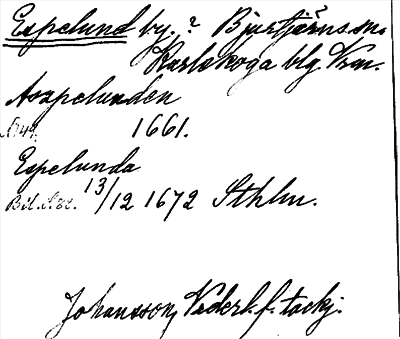 Espelund by. ? Bjurtjärns sn.
Karlskoga blg Vrm.
Asspelunden
1661.
Espelunda
13/12 1672 Sthlm.
Johansson, Vederl. f. tackj.